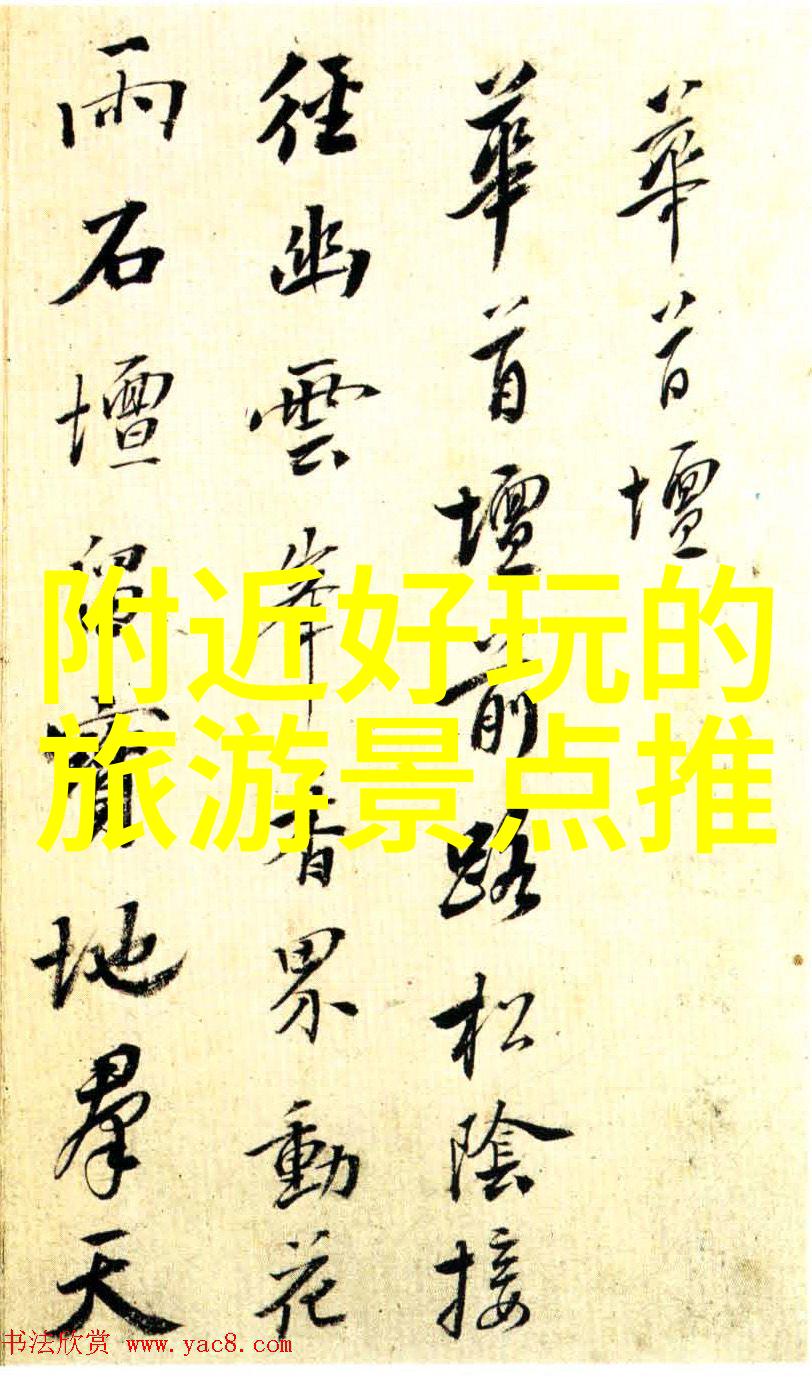 華首壇
華首壇前路松陰接
徑幽雲峯香界動花
雨石壇留寶地羣天
附近好玩的
旅游景点推
书法欣赏 www.yac8.com